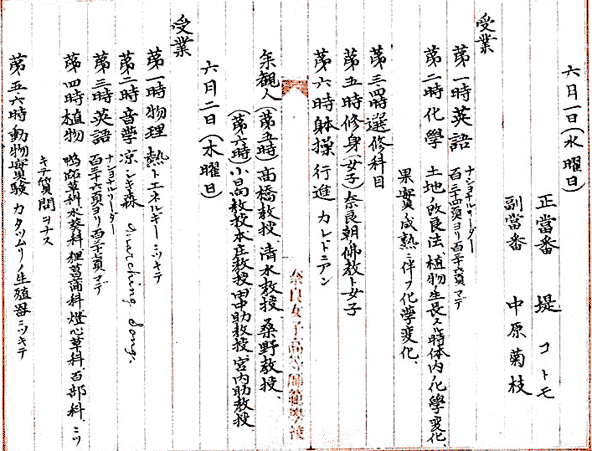 六月一日(水曜日)
正當番 堤 コトモ
副當番 中原菊枝
受業
第一時英語 ナショナルリーダー 百三十四頁ヨリ百三十六頁マデ
第二時化學 土地ノ改良法、植物生長スル時体内ノ化學変化、
果實ノ成熟ニ伴フ化學変化、
第三四時選修科目
第五時修身(女子)奈良朝佛教ト女子
第六時躰操 行進 カレドニアン
奈良女子高等師範學校
参観人(第五時)高橋教授 清水教授 桑野教授、
(第六時)小島教授本庄教授田中助教授宮内助教授
六月二日(木曜日)
受業
第一時物理 熱トエネルギーニツキテ
第二時音楽 凉シキ森 Marching Song.
第三時英語 ナショナルリーダー 百三十六頁ヨリ百三十七頁マデ
第四時植物 鴨跖草科水葵科 狸菖蒲科、燈心草科、百部科、ニツ
キテ質問ヲナス
第五六時動物實験 カタツムリノ生殖器ニツキテ